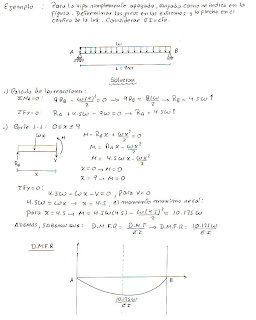 Ejemplo: Para la viga simplemente apoyada, cargada como se indica en la
figura. Determinar los giros en los extremos y la flecha en el
centro de la luz. Considerar EI=cte.
W
A B
L = 9m
Solucion
1) Calculo de las reacciones:
ΣMA=0: 9RB - W(9)²/2 = 0 → 9RB = 81W/2 → RB = 4.5W↑
ΣFy=0: RA + 4.5W - 9W = 0 → RA = 4.5W↑
2) Corte 1-1: 0≤x≤9
M - RAx + Wx²/2 = 0
M = RAx - Wx²/2
M = 4.5Wx - Wx²/2
x = 0 → M = 0
x = 9 → M = 0
ΣFy=0:
4.5W - Wx - V = 0, para V=0
4.5W = Wx → x = 4.5, el momento maximo sera:
para x = 4.5 → M = 4.5W(4.5) - W(4.5)²/2 = 10.125W
Ademas, sabemos que: D.M.F.R = D.M.F/EI → D.M.F.R = 10.125W/EI
D.M.F.R
A B
10.125W/EI